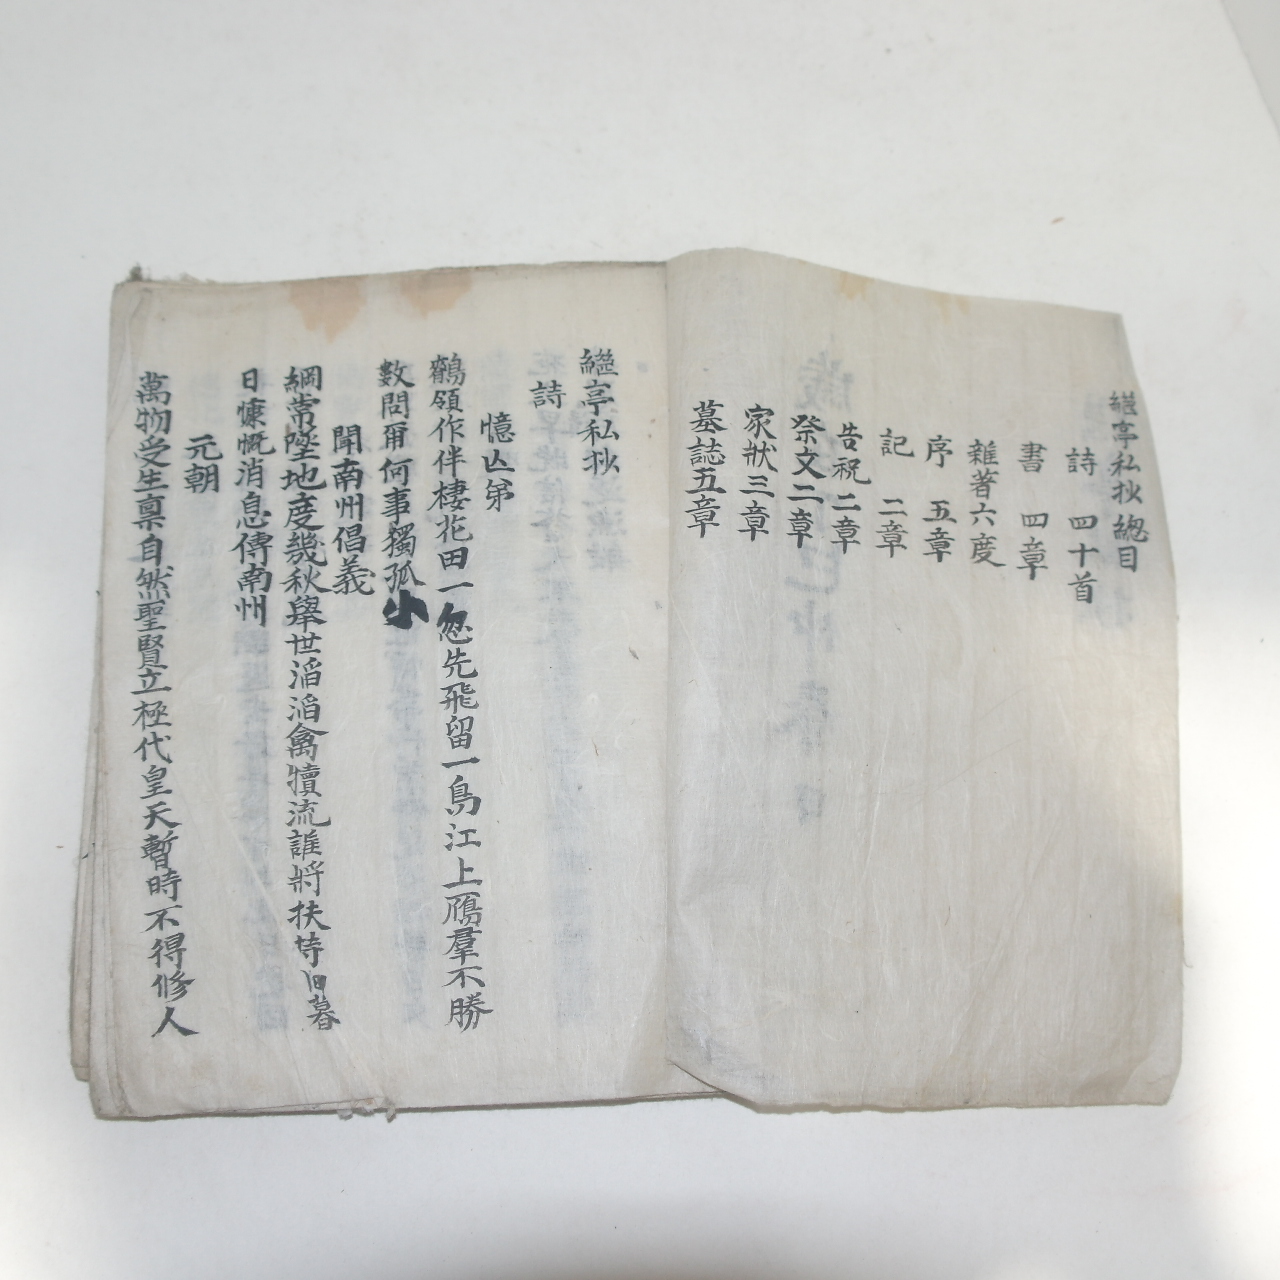 繼亭私抄總目
詩 四十首
書 四章
雜著六度
序 五章
記 二章
告祝二章
祭文二章
家狀三章
墓誌五章
繼亭私抄
詩
憶亾弟
鶺領作伴棲花田一忽先飛留一島江上鴈羣不勝
數問爾何事獨孤小
聞南州倡義
綱常墬地度幾秋舉世滔滔禽犢流誰將扶持旧暮
日慷慨消息傳南州
元朝
萬物受生禀自然聖賢立極代皇天暫時不得修人